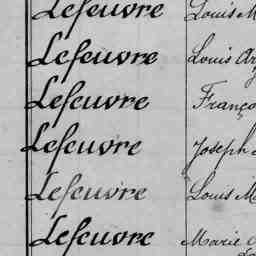 Lefeuvre Louis M
Lefeuvre Louis
Lefeuvre Franço
Lefeuvre Joseph
Lefeuvre Louis M
Lefeuvre Marie